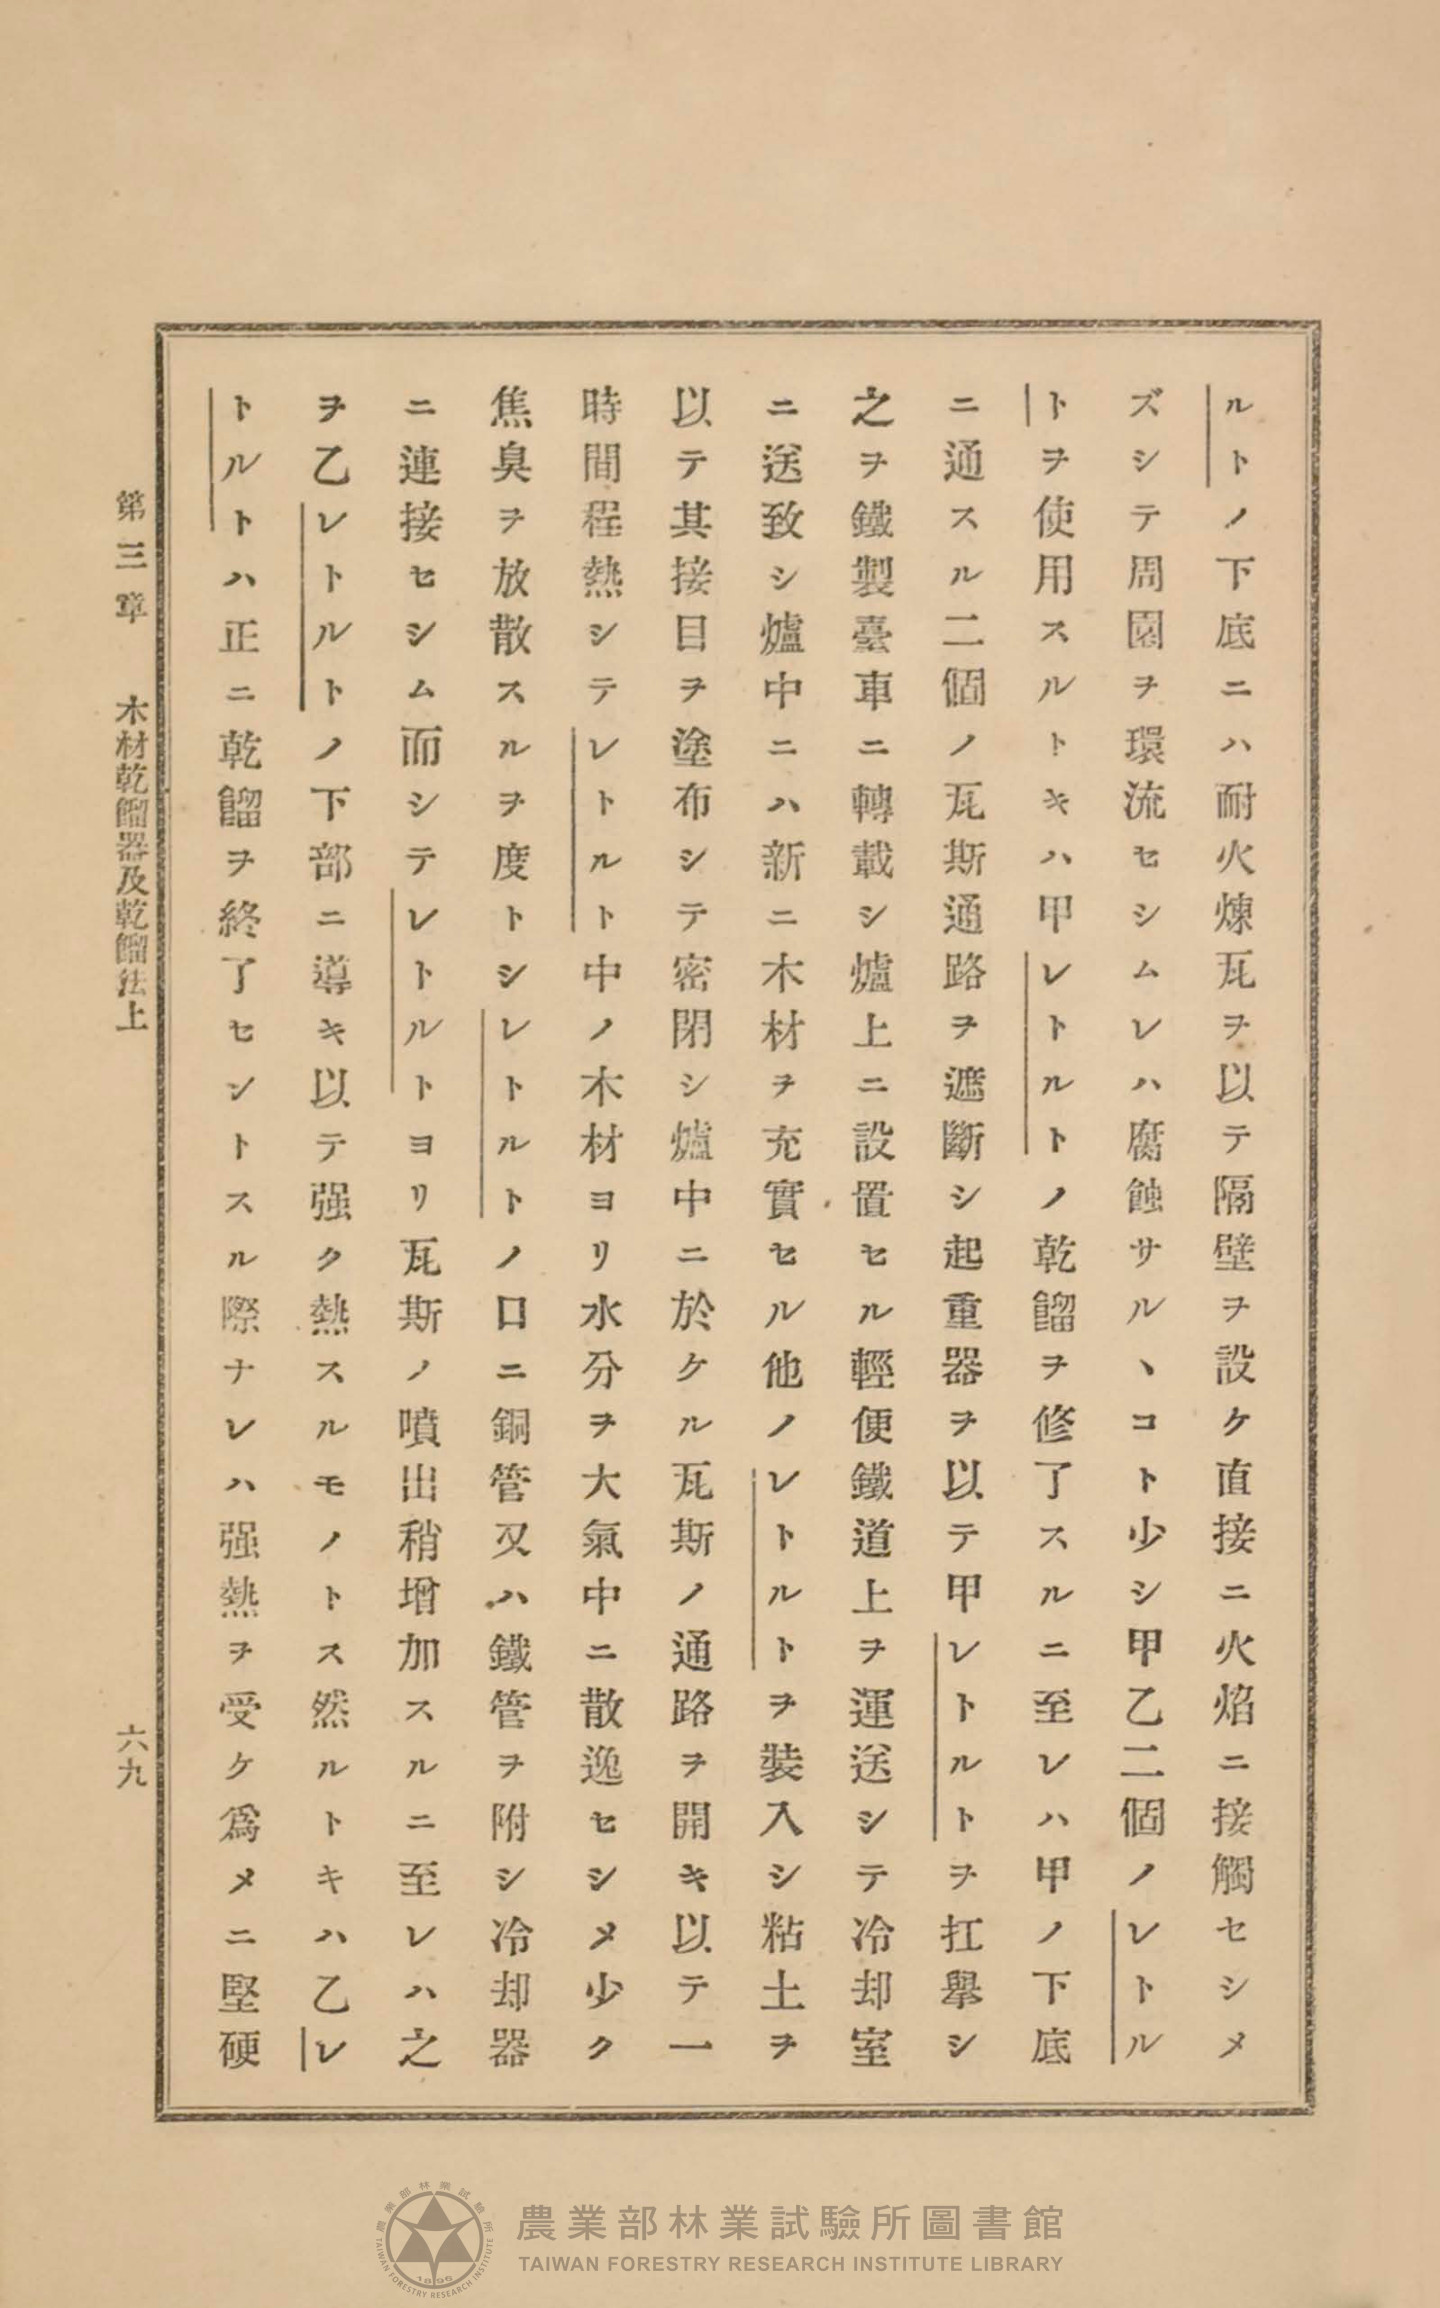 ルトノ下底ニハ耐火煉瓦ヲ以テ隔壁ヲ設ケ直接ニ火焰ニ接觸セシメ
ズシテ周圍ヲ環流セシムレハ腐蝕サルヽコト少シ甲乙二個ノレトル
トヲ使用スルトキハ甲レトルトノ乾餾ヲ修了スルニ至レハ甲ノ下底
ニ通スル二個ノ瓦斯通路ヲ遮斷シ起重器ヲ以テ甲レトルトヲ扛擧シ
之ヲ鐵製臺車ニ轉載シ爐上ニ設置セル輕便鐵道上ヲ運送シテ冷却室
ニ送致シ爐中ニハ新ニ木材ヲ充實セル他ノレトルトヲ裝入シ粘土ヲ
以テ其接目ヲ塗布シテ密閉シ爐中ニ於ケル瓦斯ノ通路ヲ開キ以テ一
時間程熱シテレトルト中ノ木材ヨリ水分ヲ大氣中ニ散逸セシメ少ク
焦臭ヲ放散スルヲ度トシレトルトノ口ニ銅管又ハ鐵管ヲ附シ冷却器
ニ連接セシム而シテレトルトヨリ瓦斯ノ噴出稍增加スルニ至レハ之
ヲ乙レトルトノ下部ニ導キ以テ强ク熱スルモノトス然ルトキハ乙レ
トルトハ正ニ乾餾ヲ終了セシトスル際ナレハ强熱ヲ受ケ爲メニ堅硬
第三章 木材乾餾器及乾餾法上
六九
農業部林業試驗所圖書館
TAIWAN FORESTRY RESEARCH INSTITUTE LIBRARY
農業部林業試驗所
TAIWAN FORESTRY RESEARCH INSTITUTE
1896